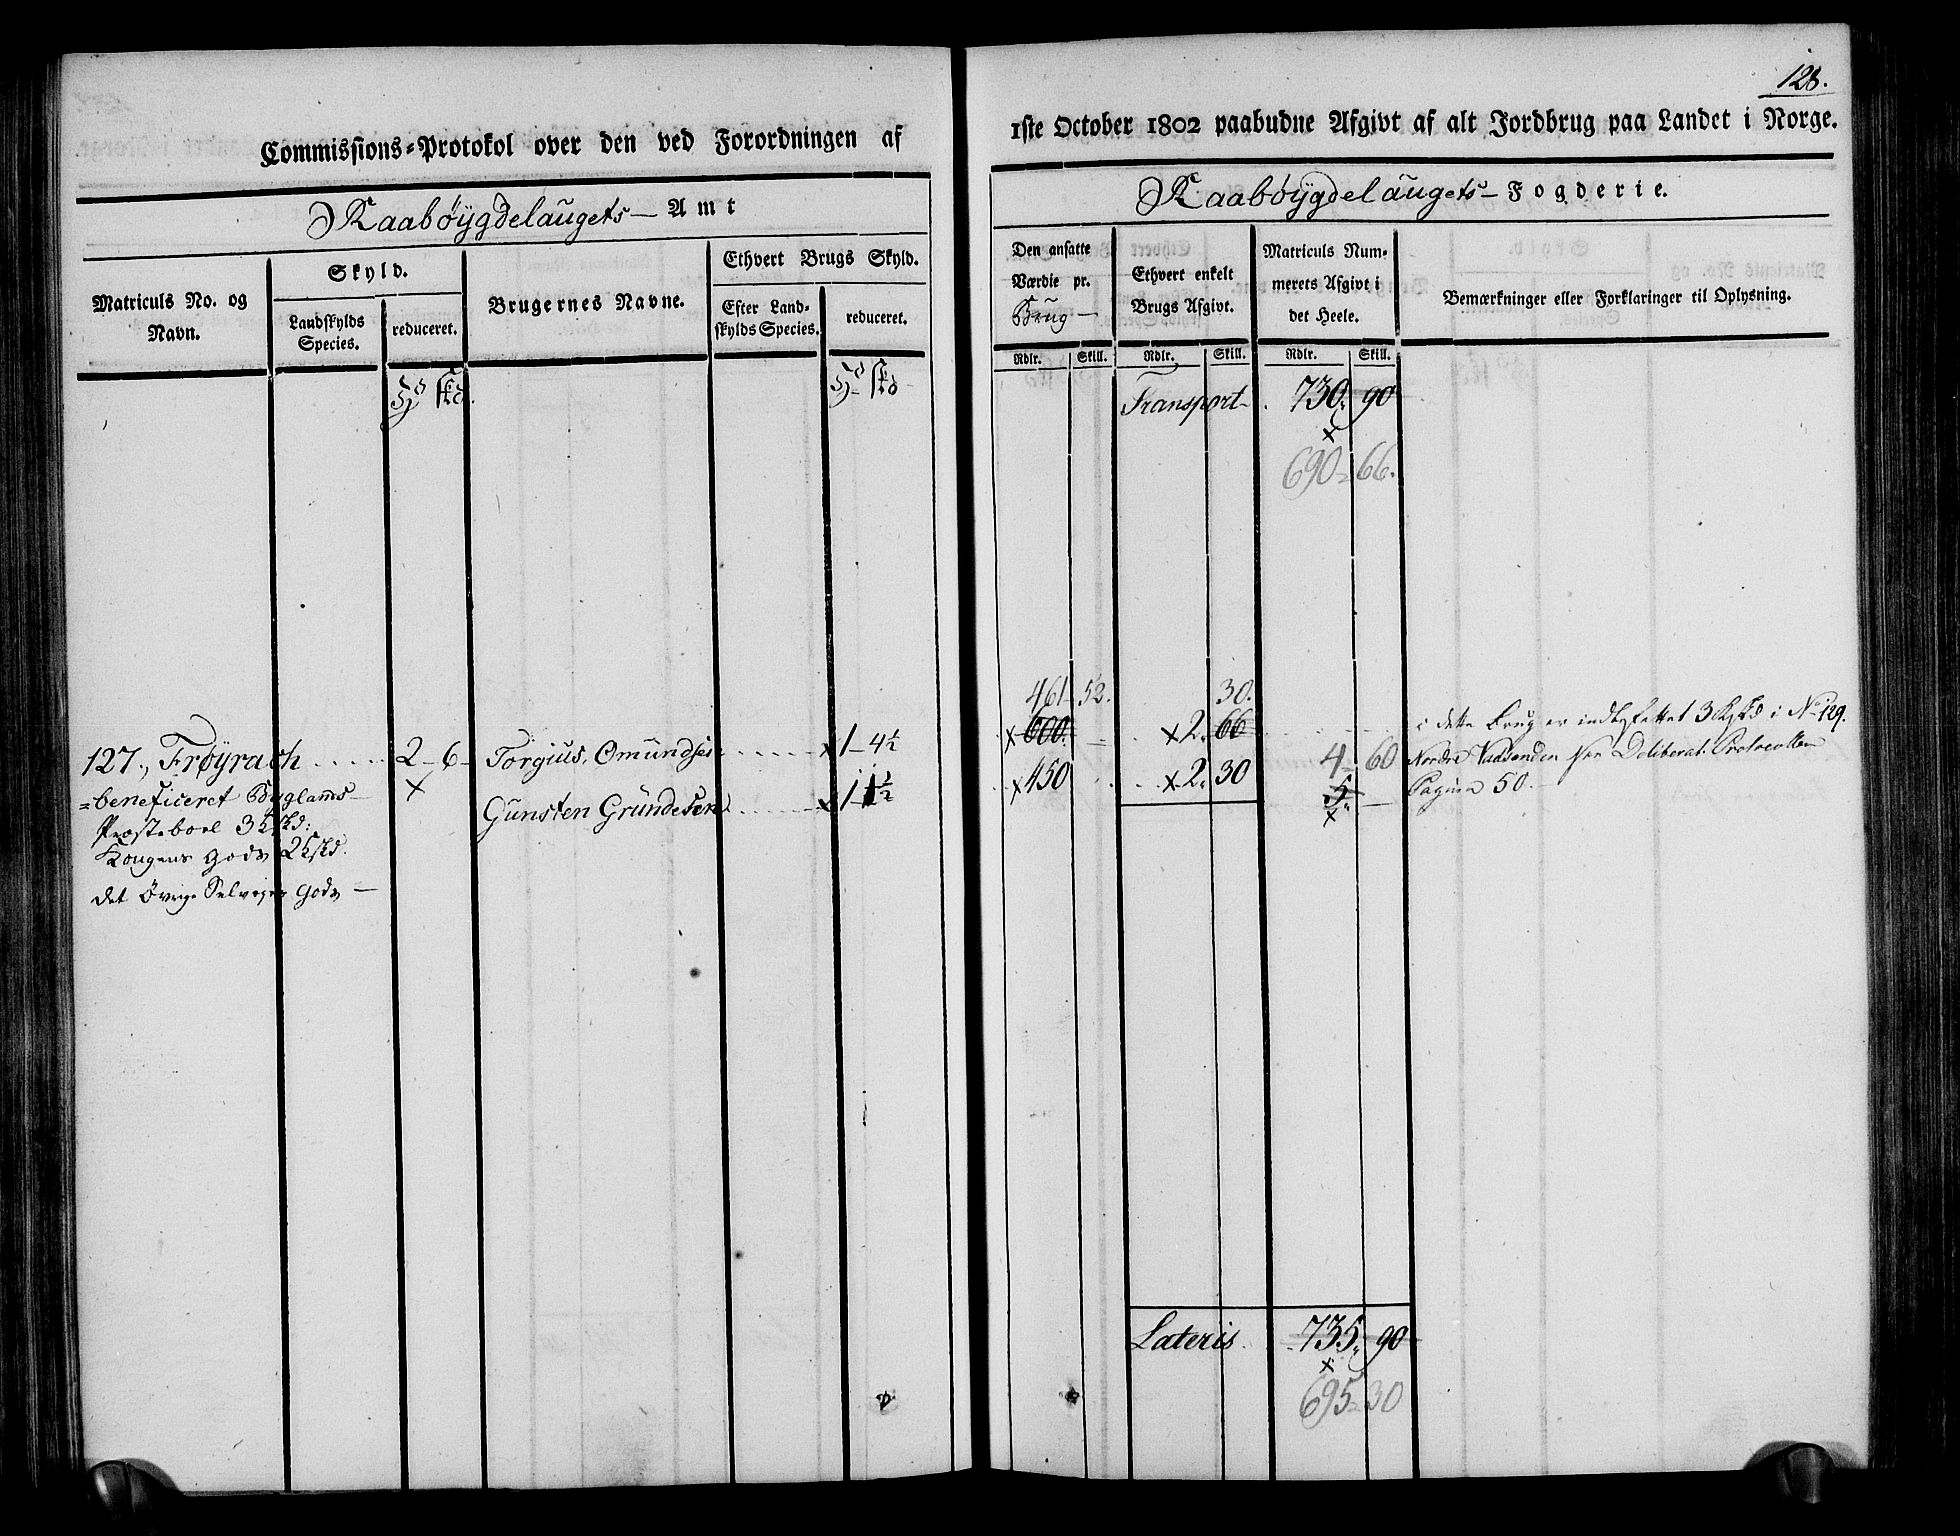 128.
Commissions-Protokol over den ved Forordningen af
1ste October 1802 paabudne Afgivt af alt Jordbrug paa Landet i Norge.
Raabøygdelaugets — Amt
Raabøygdelaugets — Fogderie.
Matriculs No. og Navn.
Skyld.
Landskylds Species.
reduceret.
Brugernes Navne.
Ethvert Brugs Skyld.
Efter Landskylds Species.
reduceret.
Den ansatte Værdie pr. Brug —
Ethvert enkelt Brugs Afgivt.
Matriculs Nummerets Afgivt i det Heele.
Bemærkninger eller Forklaringer til Oplysning.
Rdlr. Skill. Rdlr. Skill. Rdlr. Skill.
Transport 730 90
690 66.
461 52. 30.
127., Frøyrach 2 - 6 - Torgius Omundsen x 1 - 4½ x 600. x 2. 66
i dette Brug er indbefattet 3 Kskd i No 129.
4 60 Nordre Per Deliberat: Protocollen
= beneficeret Byglands x Gunsten Grundesen x 1 - 1½ x 450 x 2. 30 5. — Pagina 50. —
Præsteboel 3 kskd:
Kongens Gods 2 kskd.
det Øvrige Selvejer Gods —
Lateris 735 90
695 30